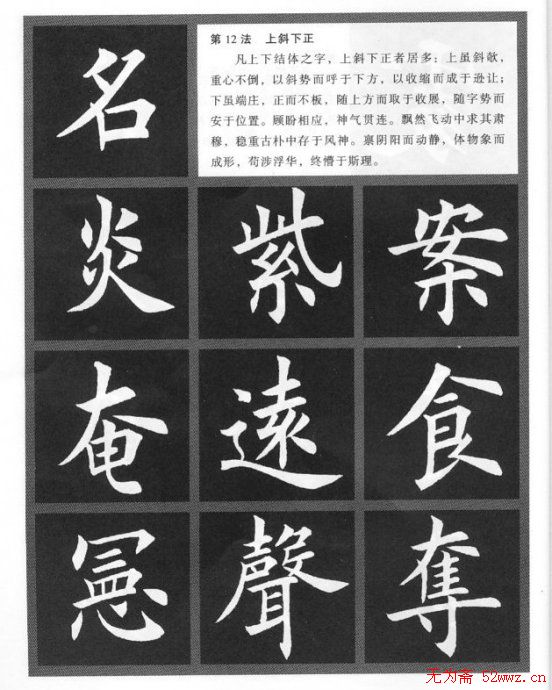 名
第 12 法 上斜下正
凡上下结体之字，上斜下正者居多；上虽斜欹，
重心不倒，以斜势而呼于下方，以收缩而成于逊让；
下虽端庄，正而不板，随上方而取于收展，随字势而
安于位置。顾盼相应，神气贯连。飘然飞动中求其肃
穆，稳重古朴中存于风神。禀阴阳而动静，体物象而
成形，苟涉浮华，终懵于斯理。
炎 紫 案
奄 遠 食
聲 奪
无为斋 52wwz.cn